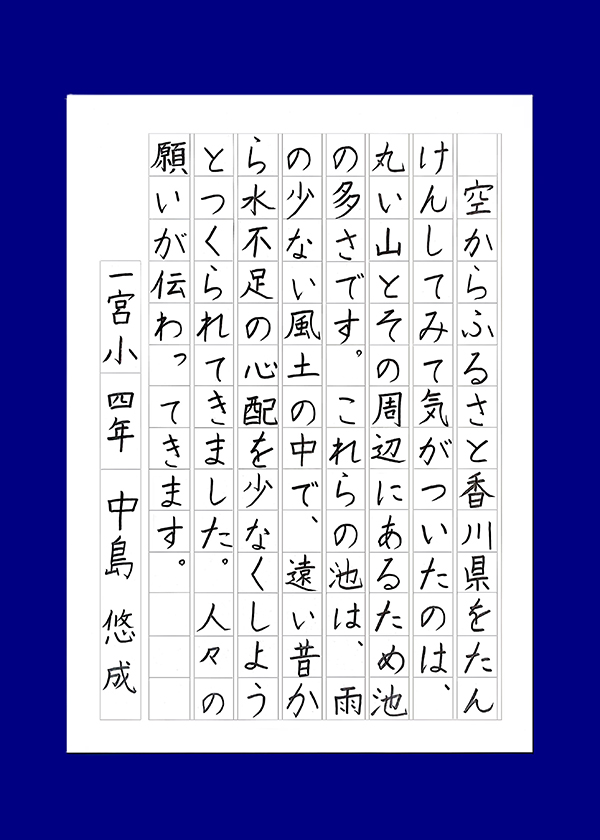 空からふるさと香川県をたん
けんしてみて気がついたのは、
丸い山とその周辺にあるため池
の多さです。これらの池は、雨
の少ない風土の中で、遠い昔か
ら水不足の心配を少なくしよう
とつくられてきました。人々の
願いが伝わってきます。
一宮小 四年 中島 悠成